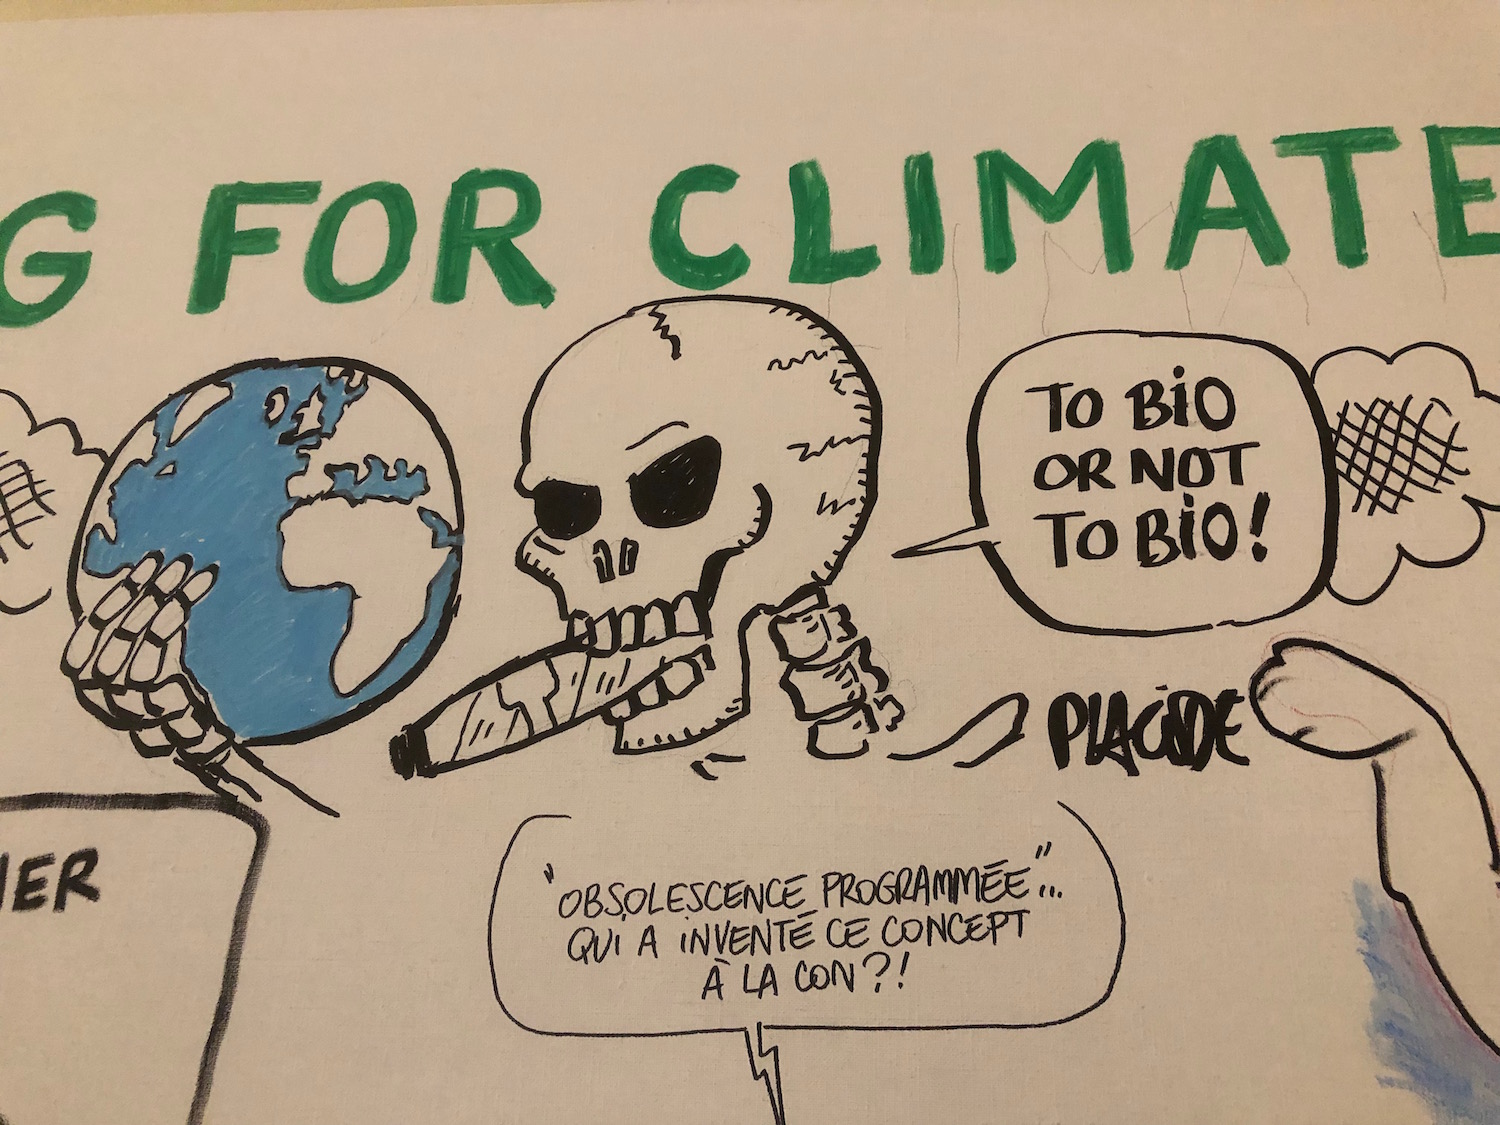 G FOR CLIMATE
TO BIO
OR NOT
TO BIO!
PLACIDE
IER
"OBSOLESCENCE PROGRAMMÉE"...
QUI A INVENTÉ CE CONCEPT
À LA CON?!